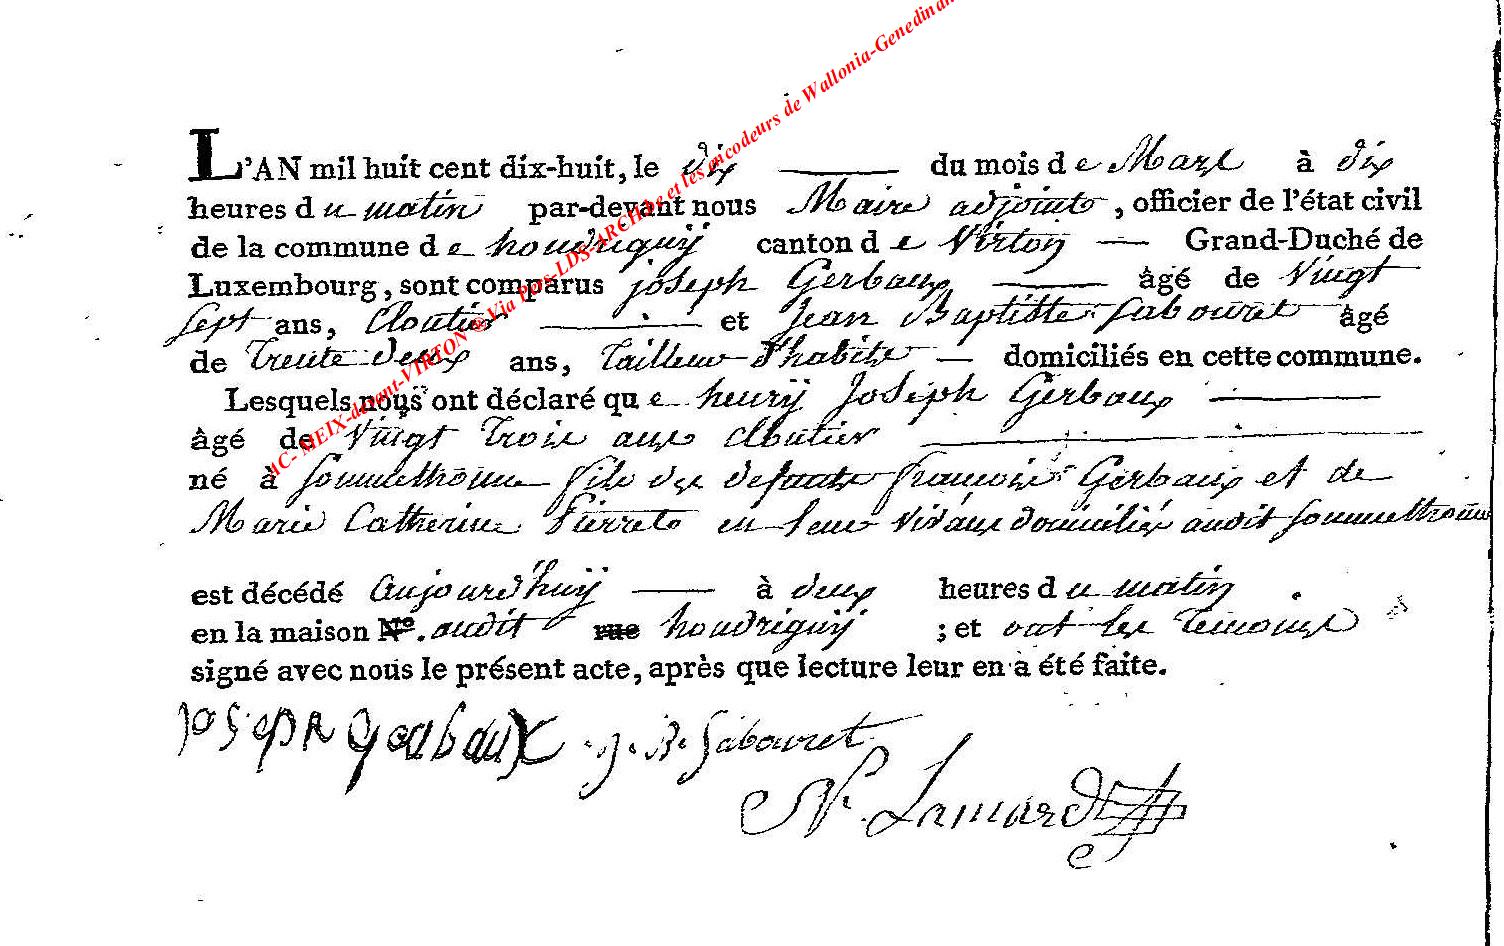 AC- MEIX-devant-VIRTON © Via Pers-LDS-ARCHbe et les encodeurs de Wallonia-Genedinan
L'AN mil huit cent dix-huit, le dix du mois de Mars à dix
heures du matin par-devant nous Maire adjoints, officier de l'état civil
de la commune de houdriguÿ canton de Virton Grand-Duché de
Luxembourg, sont comparus joseph Gerbaux âgé de Vingt
Sept ans, Cloutier et Jean Baptiste Sabouret âgé
de Trente deux ans, Tailleur d'habits domiciliés en cette commune.
Lesquels nous ont déclaré que henrÿ Joseph Gerbaux
âgé de Vingt Trois ans cloutier
né à Sommethonne fils des defunts françois Gerbaux et de
Marie Catherine Pierrets en leur vivans domiciliés audit Sommethonne
est décédé aujourd'huÿ à deux heures du matin
en la maison No. audit rue houdriguÿ ; et ont les temoins
signé avec nous le présent acte, après que lecture leur en a été faite.
joseph gerbaux j. B. Sabouret
N. Lamard